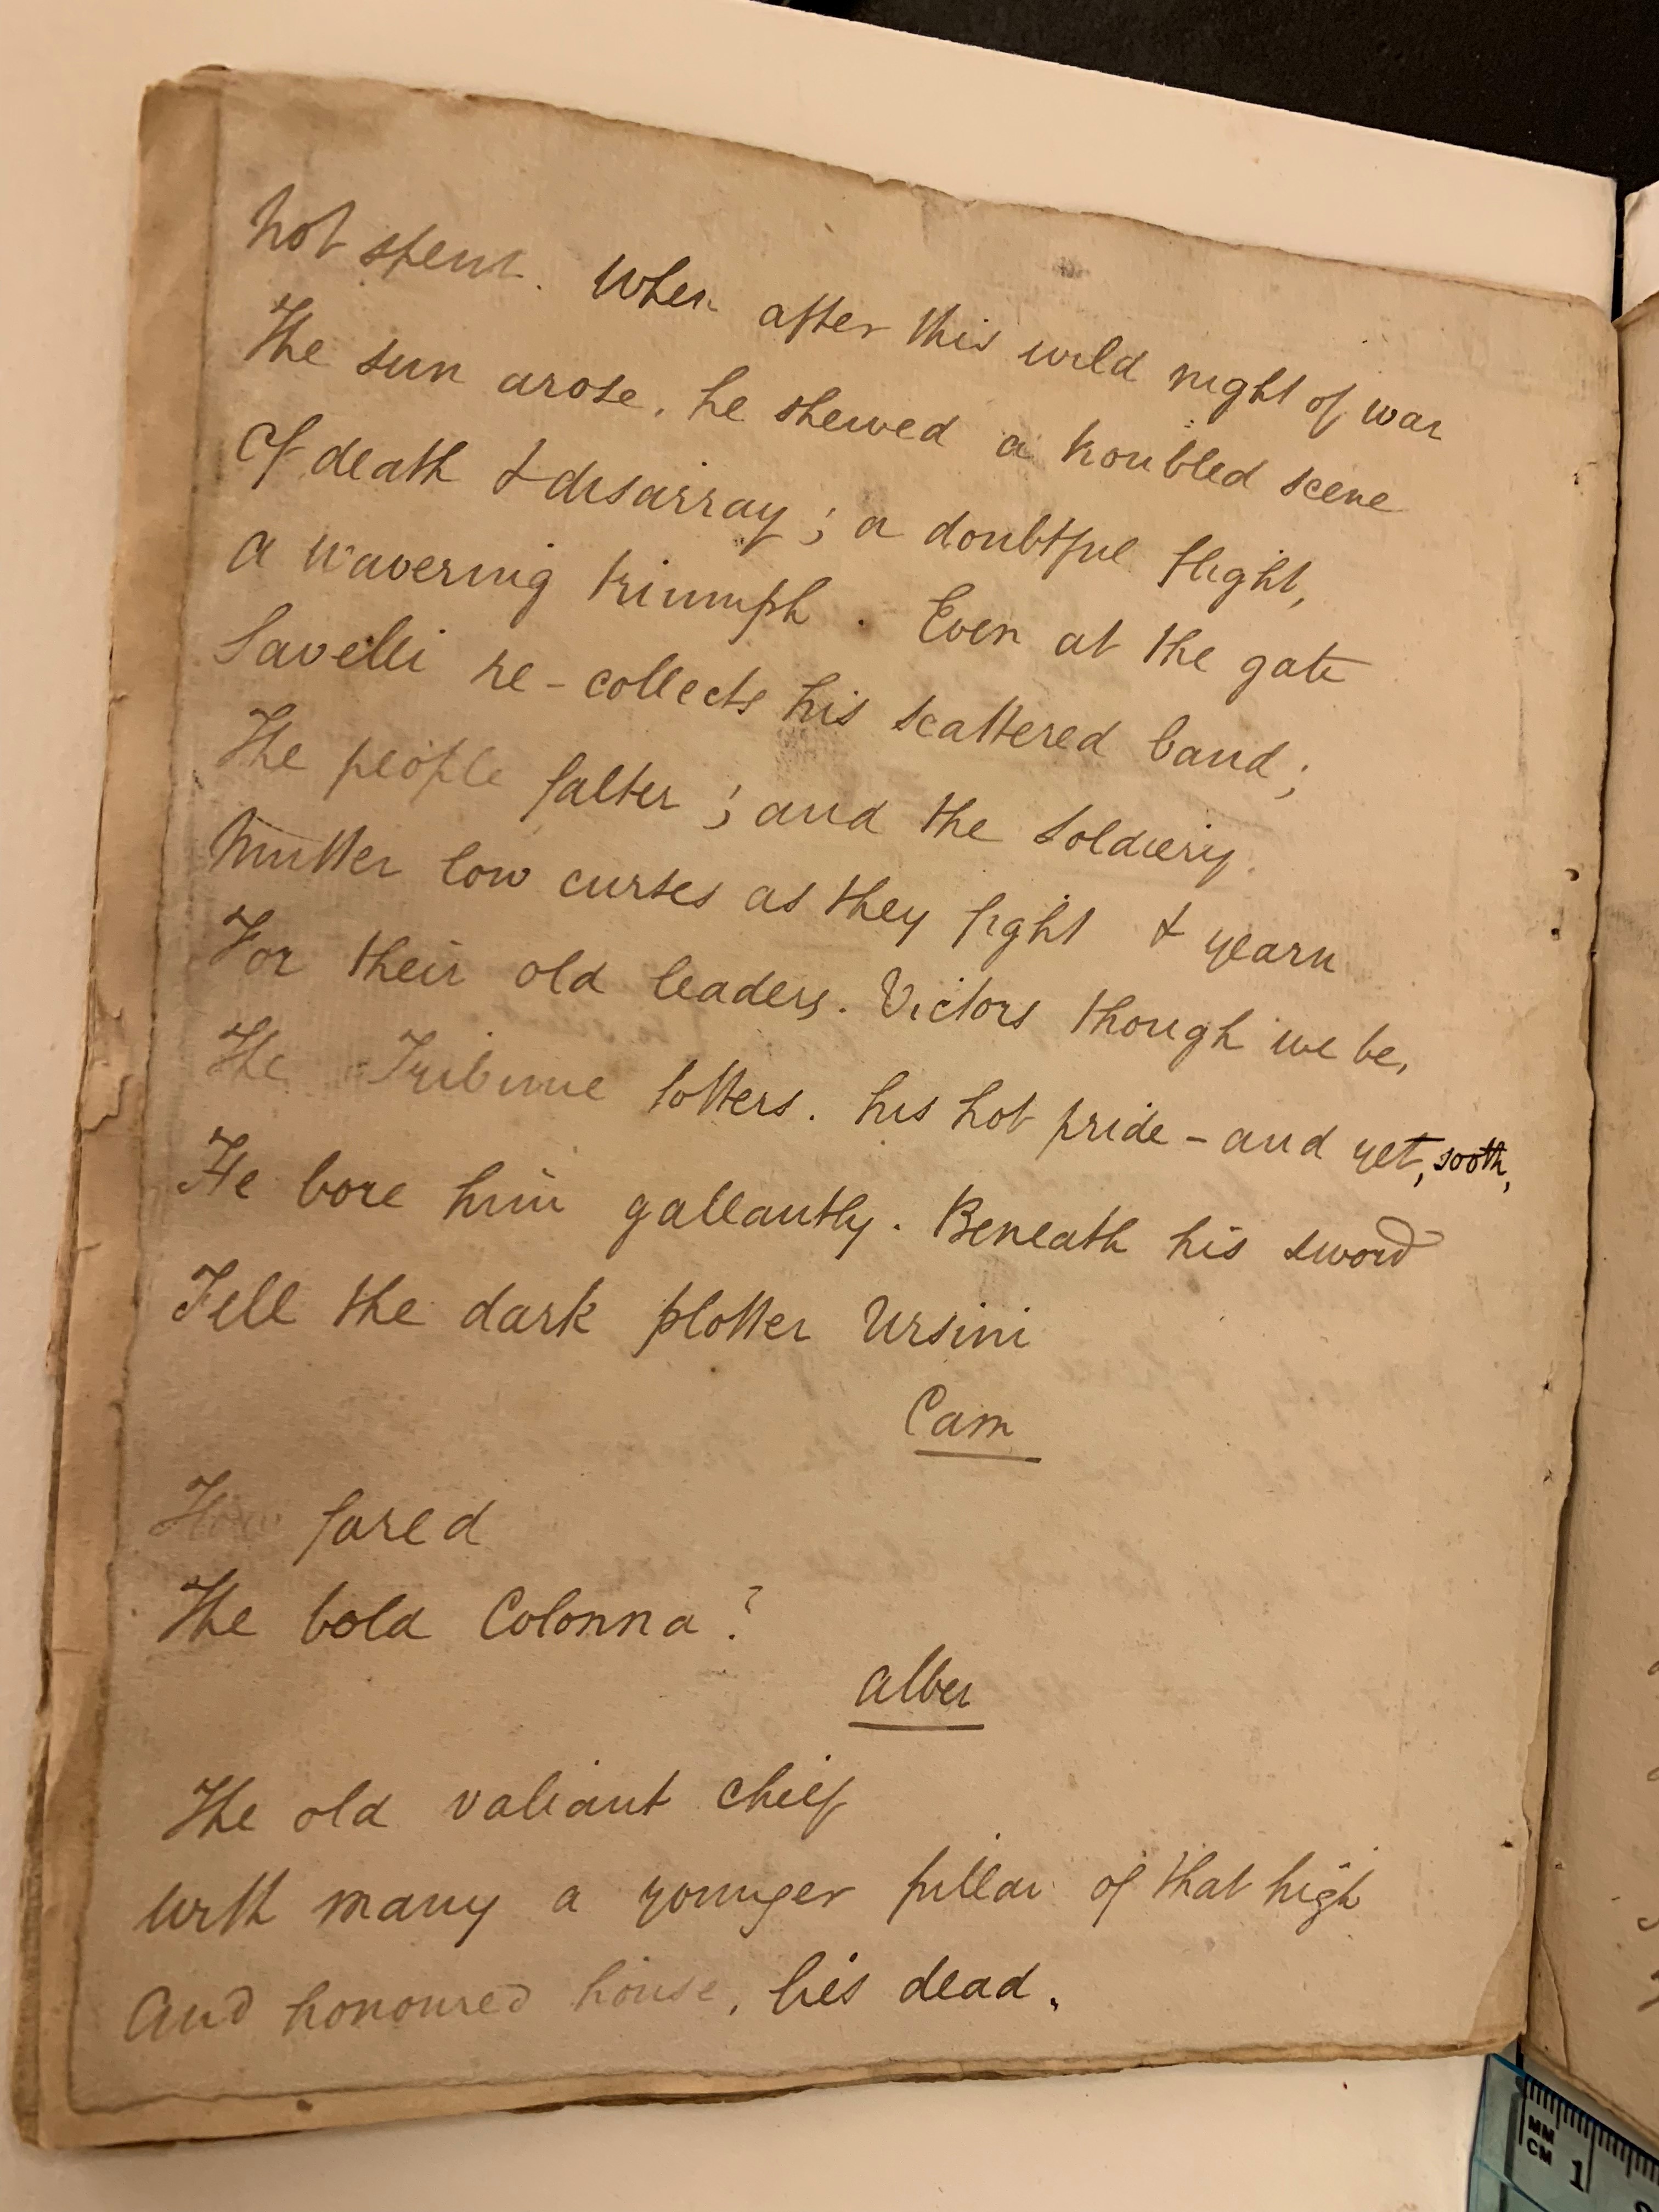 Not spent. When after this wild night of war
The sun arose, he shewed a troubled scene
Of death & disarray; a doubtful flight,
A wavering triumph. Even at the gate
Savelli re-collects his scattered band;
The people falter; and the soldiery.
Mutter low curses as they fight & yearn
For their old leaders. Victors though we be,
The Tribune totters. his hot pride - and yet, sooth,
He bore him gallantly. Beneath his sword
Fell the dark plotter Ursini
Cam
How fared
The bold Colonna?
Alber
The old valiant chief
With many a younger pillar of that high
And honoured house, lies dead.
MM
CM 1